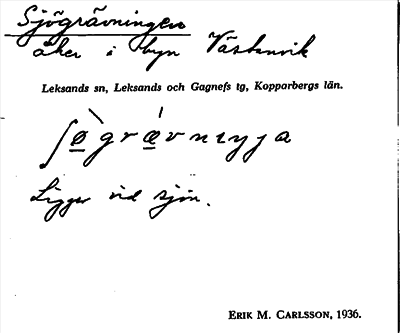 Sjögrävningen
åker i byn Västanvik
Leksands sn, Leksands och Gagnefs tg, Kopparbergs län.
Ligger vid sjön.
ERIK M. CARLSSON, 1936.